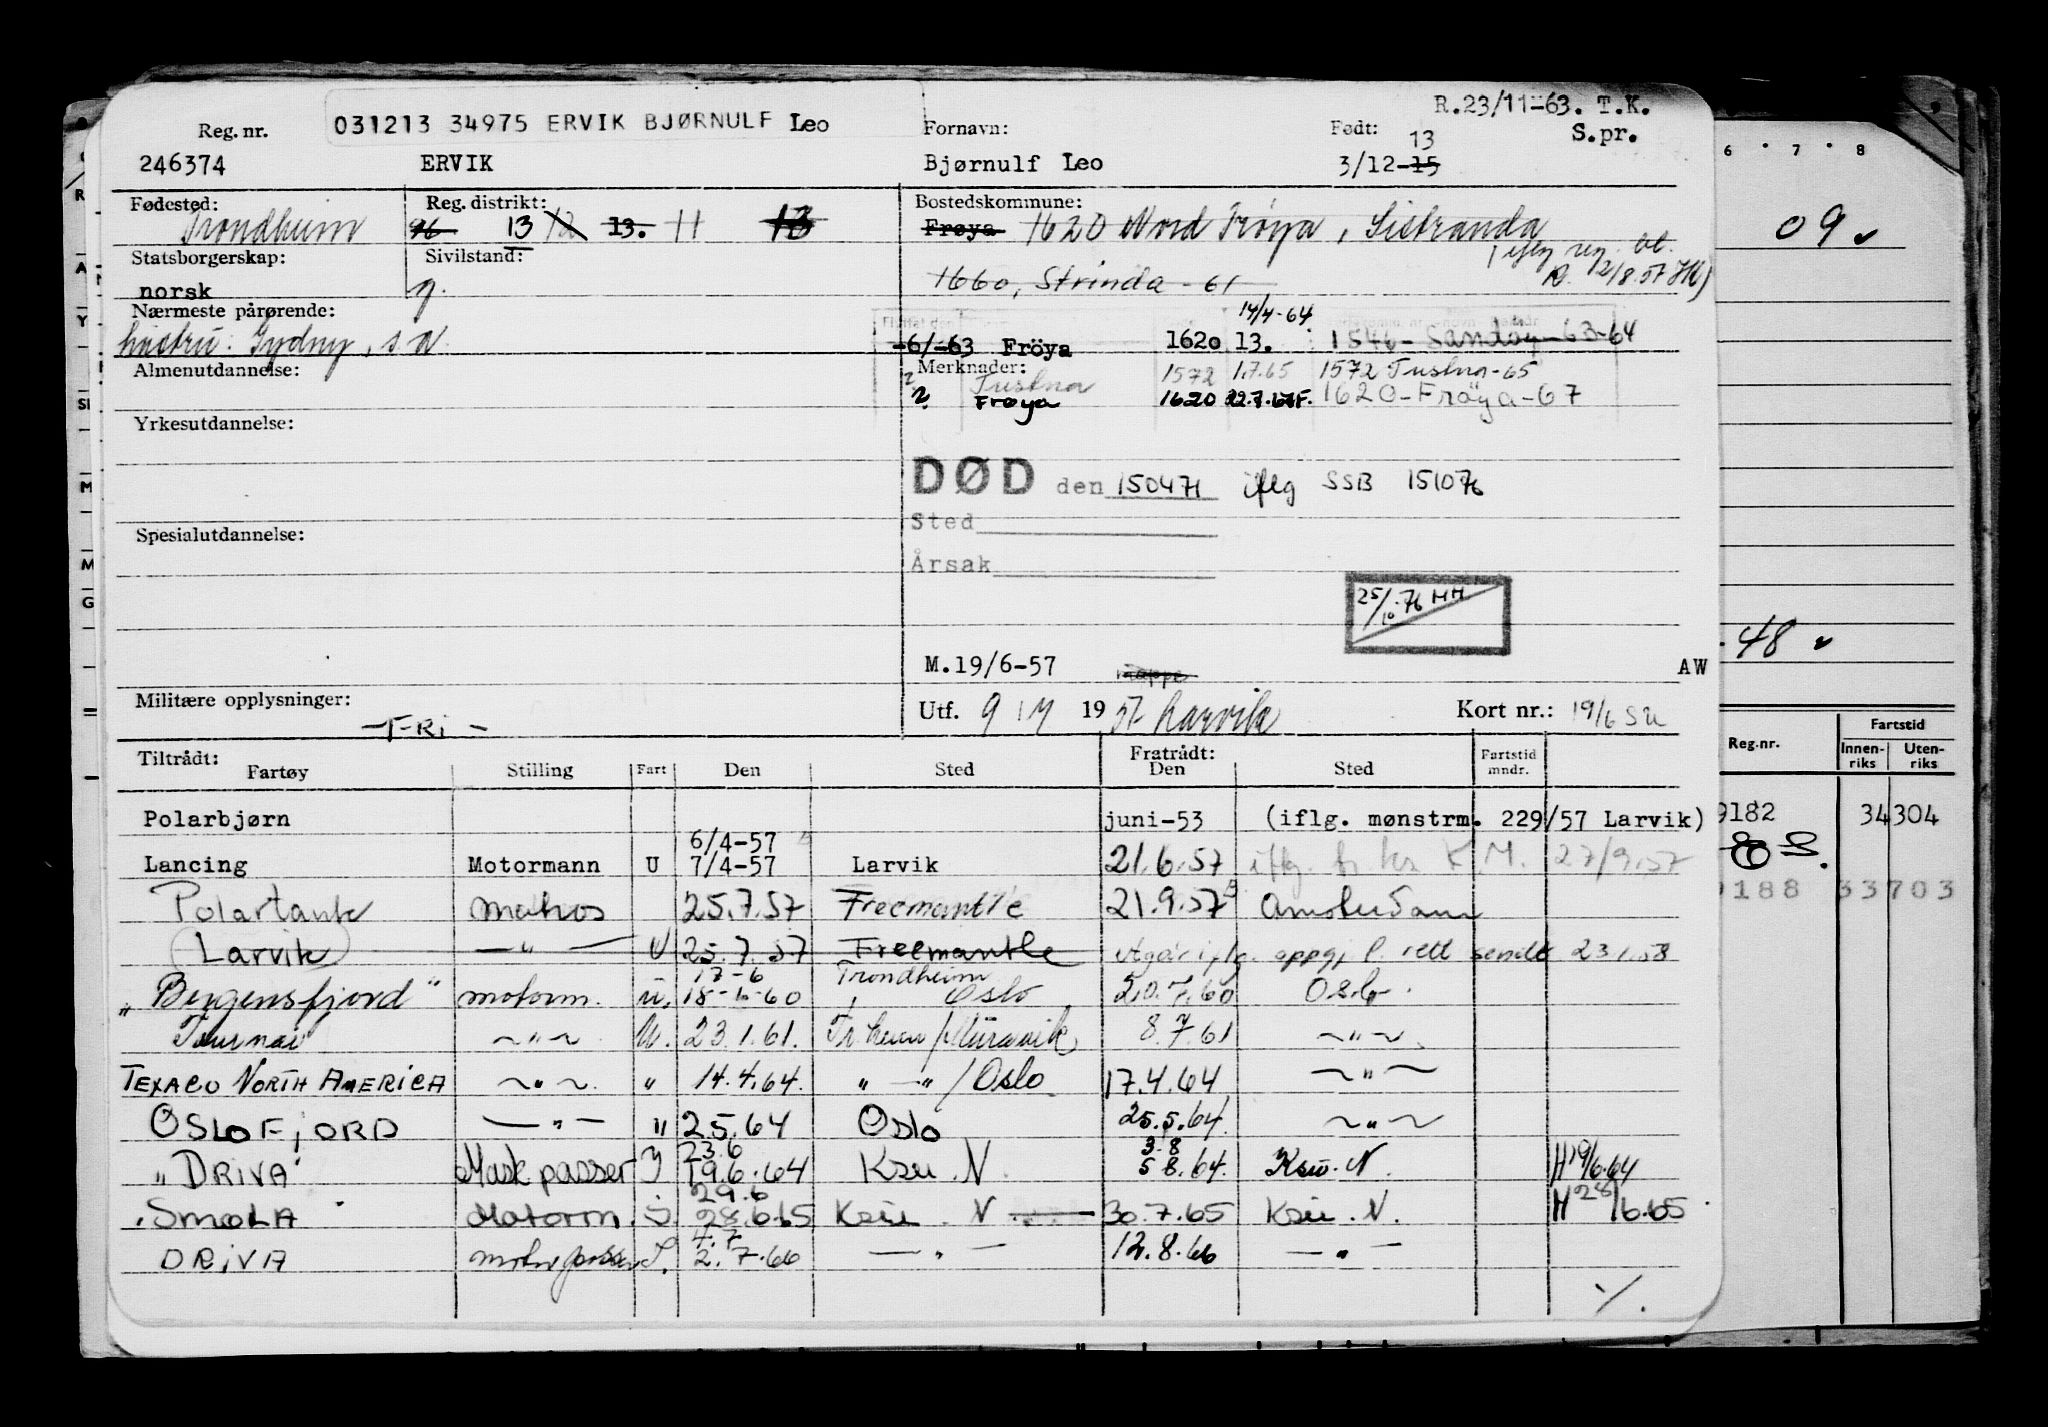 R.23/11-63. T.K.
Reg. nr. 031213 34975 ERVIK BJØRNULF Leo Fornavn: Født: 13 S.pr.
246374 ERVIK Bjørnulf Leo 3/12-15
Fødested: Reg. distrikt: Bostedskommune:
Trondheim 96 13 12 13. 11 13 Frøya 1620 Nord Frøya, Sistranda
Statsborgerskap: Sivilstand: (iflg reg. bl.
norsk g. 1660, Strinda - 61 R. 2/8.57
Nærmeste pårørende: 14/4-64
hustru: Gydny, s a -6/-63 Fröya 1620 13. 1546 - Sandøy - 63-64
Almenutdannelse: Merknader: ? Tustna 1572 1.7.65 1572 Tustna-65
? Frøya 1620 22.7.67F. 1620-Frøya-67
Yrkesutdannelse:
DØD den 150471 iflg SSB 151076
Sted
Spesialutdannelse:
Årsak
25/10-76 HH
M.19/6-57 mappe AW
Militære opplysninger: Utf. 9/7 1957 Larvik Kort nr.: 19/6 Su
-FRi-
Tiltrådt: Fratrådt:
Fartøy Stilling Fart Den Sted Den Sted Fartstid mndr.
Polarbjørn juni-53 (iflg. mønstrm. 229/57 Larvik)
6/4-57
Lancing Motormann U 7/4-57 Larvik 21.6.57 iflg. K.M. 27/9.57
Polartank Matros 25.7.57 Freemantle 21.9.57 Amsterdam
Larvik — " — U 25.7.57 Freemantle utgår iflg. oppgj f. rett sendt 23.1.58
17-6 Trondheim
"Bergensfjord" motorm. u. 18-6-60 Oslo 20.7.60 Oslo.
Tournai ~ " ~ U. 23.1.61. Tr.heim/Narvik 8.7.61 ~ " ~
TEXACO NORTH AMERICA ~ " ~ " 14.4.64. " — " /Oslo 17.4.64 ~ " ~
OSLOFJORD — " — " 2.5.64 Oslo 25.5.64. ~ " ~
23.6 3.8
"DRIVA" Mask passer I 19.6.64 Ksu. N 5 8.64. Ksu. N. H 19/6.64
29.6
"SMØLA" Motorm. I. 28.6.65 Ksu. N 30.7.65 Ksu. N. H 28/6.65
4.7
DRiVA motorpasser I. 2.7.66 — " — 12.8.66 — " —
./.
6 · 7 · 8
09
48
Reg.nr. Fartstid
Innen-riks Uten-riks
9182 34 304
9188 33 703